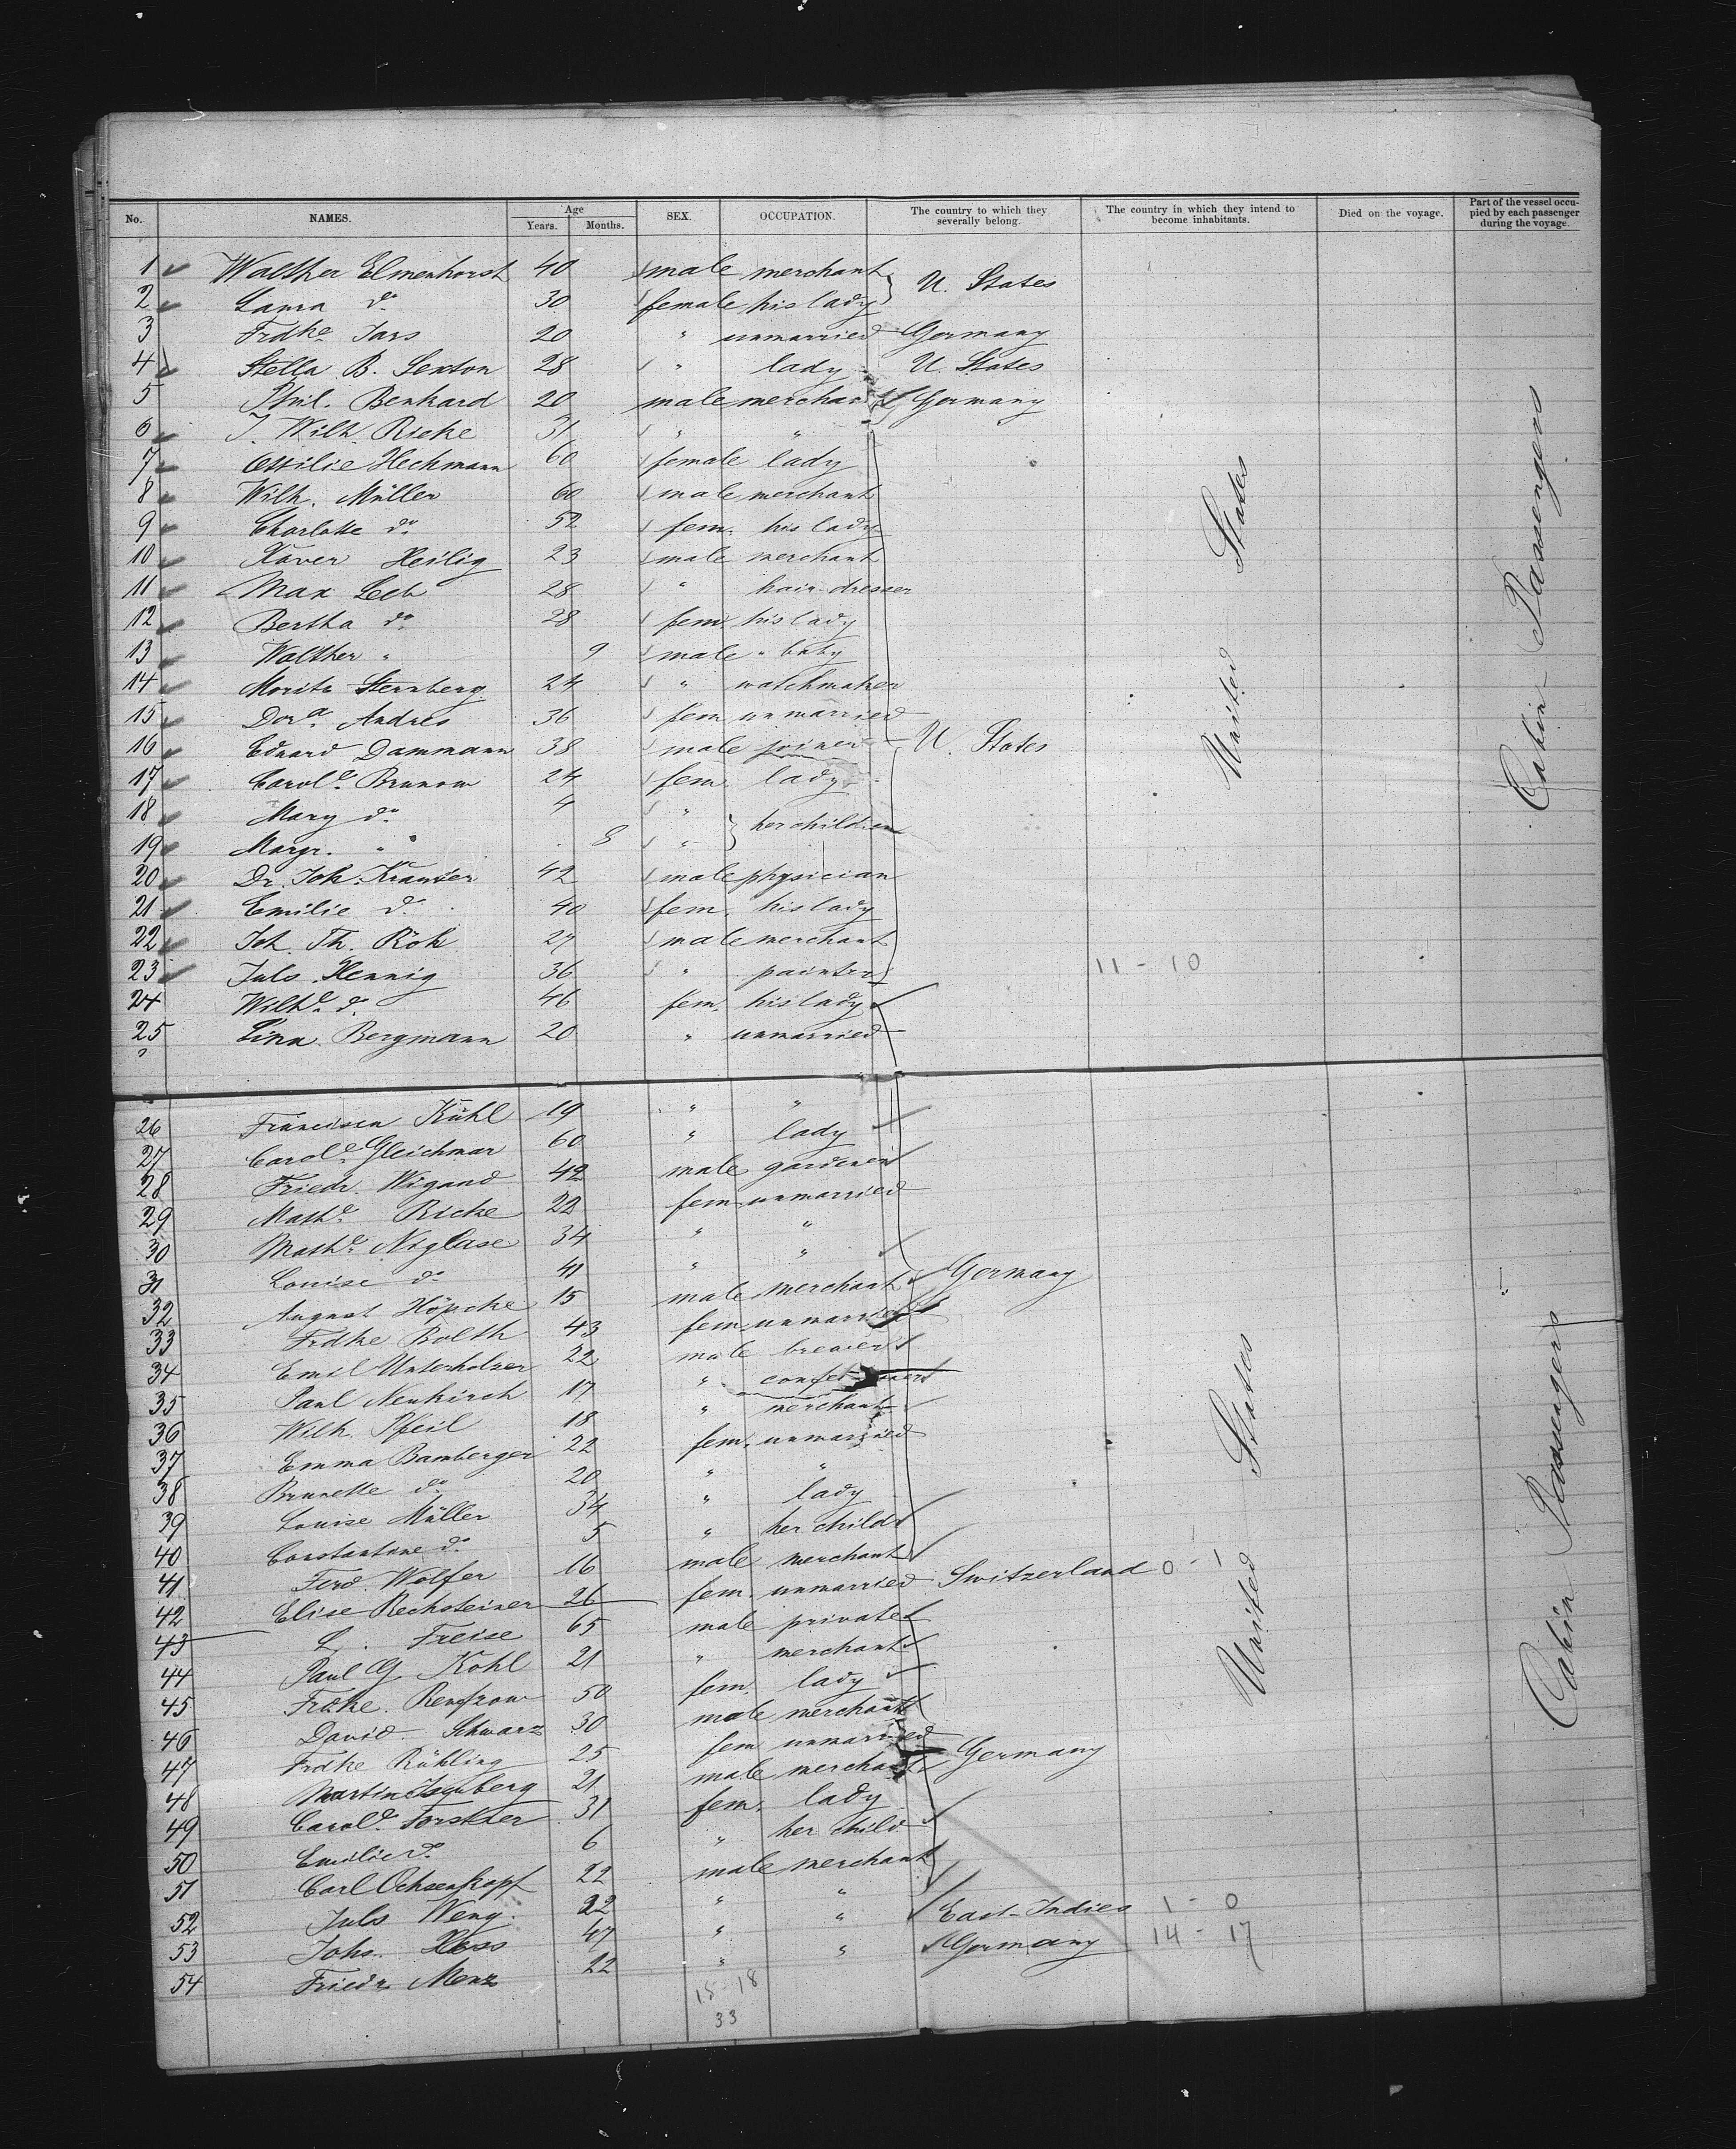 No. NAMES. Age Years. Months. SEX. OCCUPATION. The country to which they severally belong. The country in which they intend to become inhabitants. Died on the voyage. Part of the vessel occupied by each passenger during the voyage.
1 Walther Elmenhorst 40 male merchant
U. States
2 Laura do 30 female his lady
3 Frdke Jars 20 " unmarried Germany
4 Stella B. Sexton 28 " lady U. States
5 Phil. Benhard 20 male merchant Germany
6 J. Wilh. Ricke 31 " "
7 Ottilie Heckmann 60 female lady
8 Wilh. Müller 60 male merchant
9 Charlotte do 52 fem. his lady
10 Xaver Heilig 23 male merchant
11 Max Loeb 28 " hair-dresser
12 Bertha do 28 fem. his lady
13 Walther " 9 male " baby
14 Moritz Sternberg 24 " watchmaker
15 Dora Andres 36 fem unmarried
16 Eduard Dammann 38 male joiner U. States
17 Carole Brunow 24 fem. lady
18 Mary do 4 "
her children
19 Margr. " 8 "
20 Dr. Joh. Kramer 42 male physician
21 Emilie do 40 fem. his lady
22 Joh. Th. Röh 27 male merchant
23 Juls. Hennig 36 " painter 11 - 10
24 Wilhe do 46 fem. his lady
25 Lina Bergmann 20 " unmarried
26 Francisca Kühl 19 " "
27 Carole Gleichmar 60 " lady
28 Friedr. Wigand 42 male gardener
29 Mathe Ricke 22 fem unmarried
30 Mathe Niglase 34 " "
31 Louise do 41 " "
32 August Höpcke 15 male merchant Germany
33 Frdke Bolth 43 fem unmarried
34 Emil Unterholzer 22 male brewer
35 Paul Neukirch 17 " confectioner
36 Wilh. Pfeil 18 " merchant
37 Emma Bamberger 22 fem. unmarried
38 Brunette do 20 " "
39 Louise Müller 34 " lady
40 Constantine do 5 " her child
41 Ferd. Wolfer 16 male merchant
42 Elise Rechsteiner 26 fem. unmarried Switzerland 0 - 1
43 L. Freise 65 male private
44 Paul G Kohl 21 " merchant
45 Frdke. Renfzow 50 fem. lady
46 David Schwarz 30 male merchant
47 Frdke Rühling 25 fem unmarried
48 Martin Isenberg 21 male merchant Germany
49 Carole Forstner 31 fem. lady
50 Emilie do 6 " her child
51 Carl Ochsenkopf 22 male merchant
52 Juls Weng. 22 " "
53 Johs. Hess 47 " " East-Indies 1 - 0
54 Friedr. Menz 22 " " Germany 14 - 17
15 - 18
33
United States
United States
Cabin-Passengers
Cabin Passengers